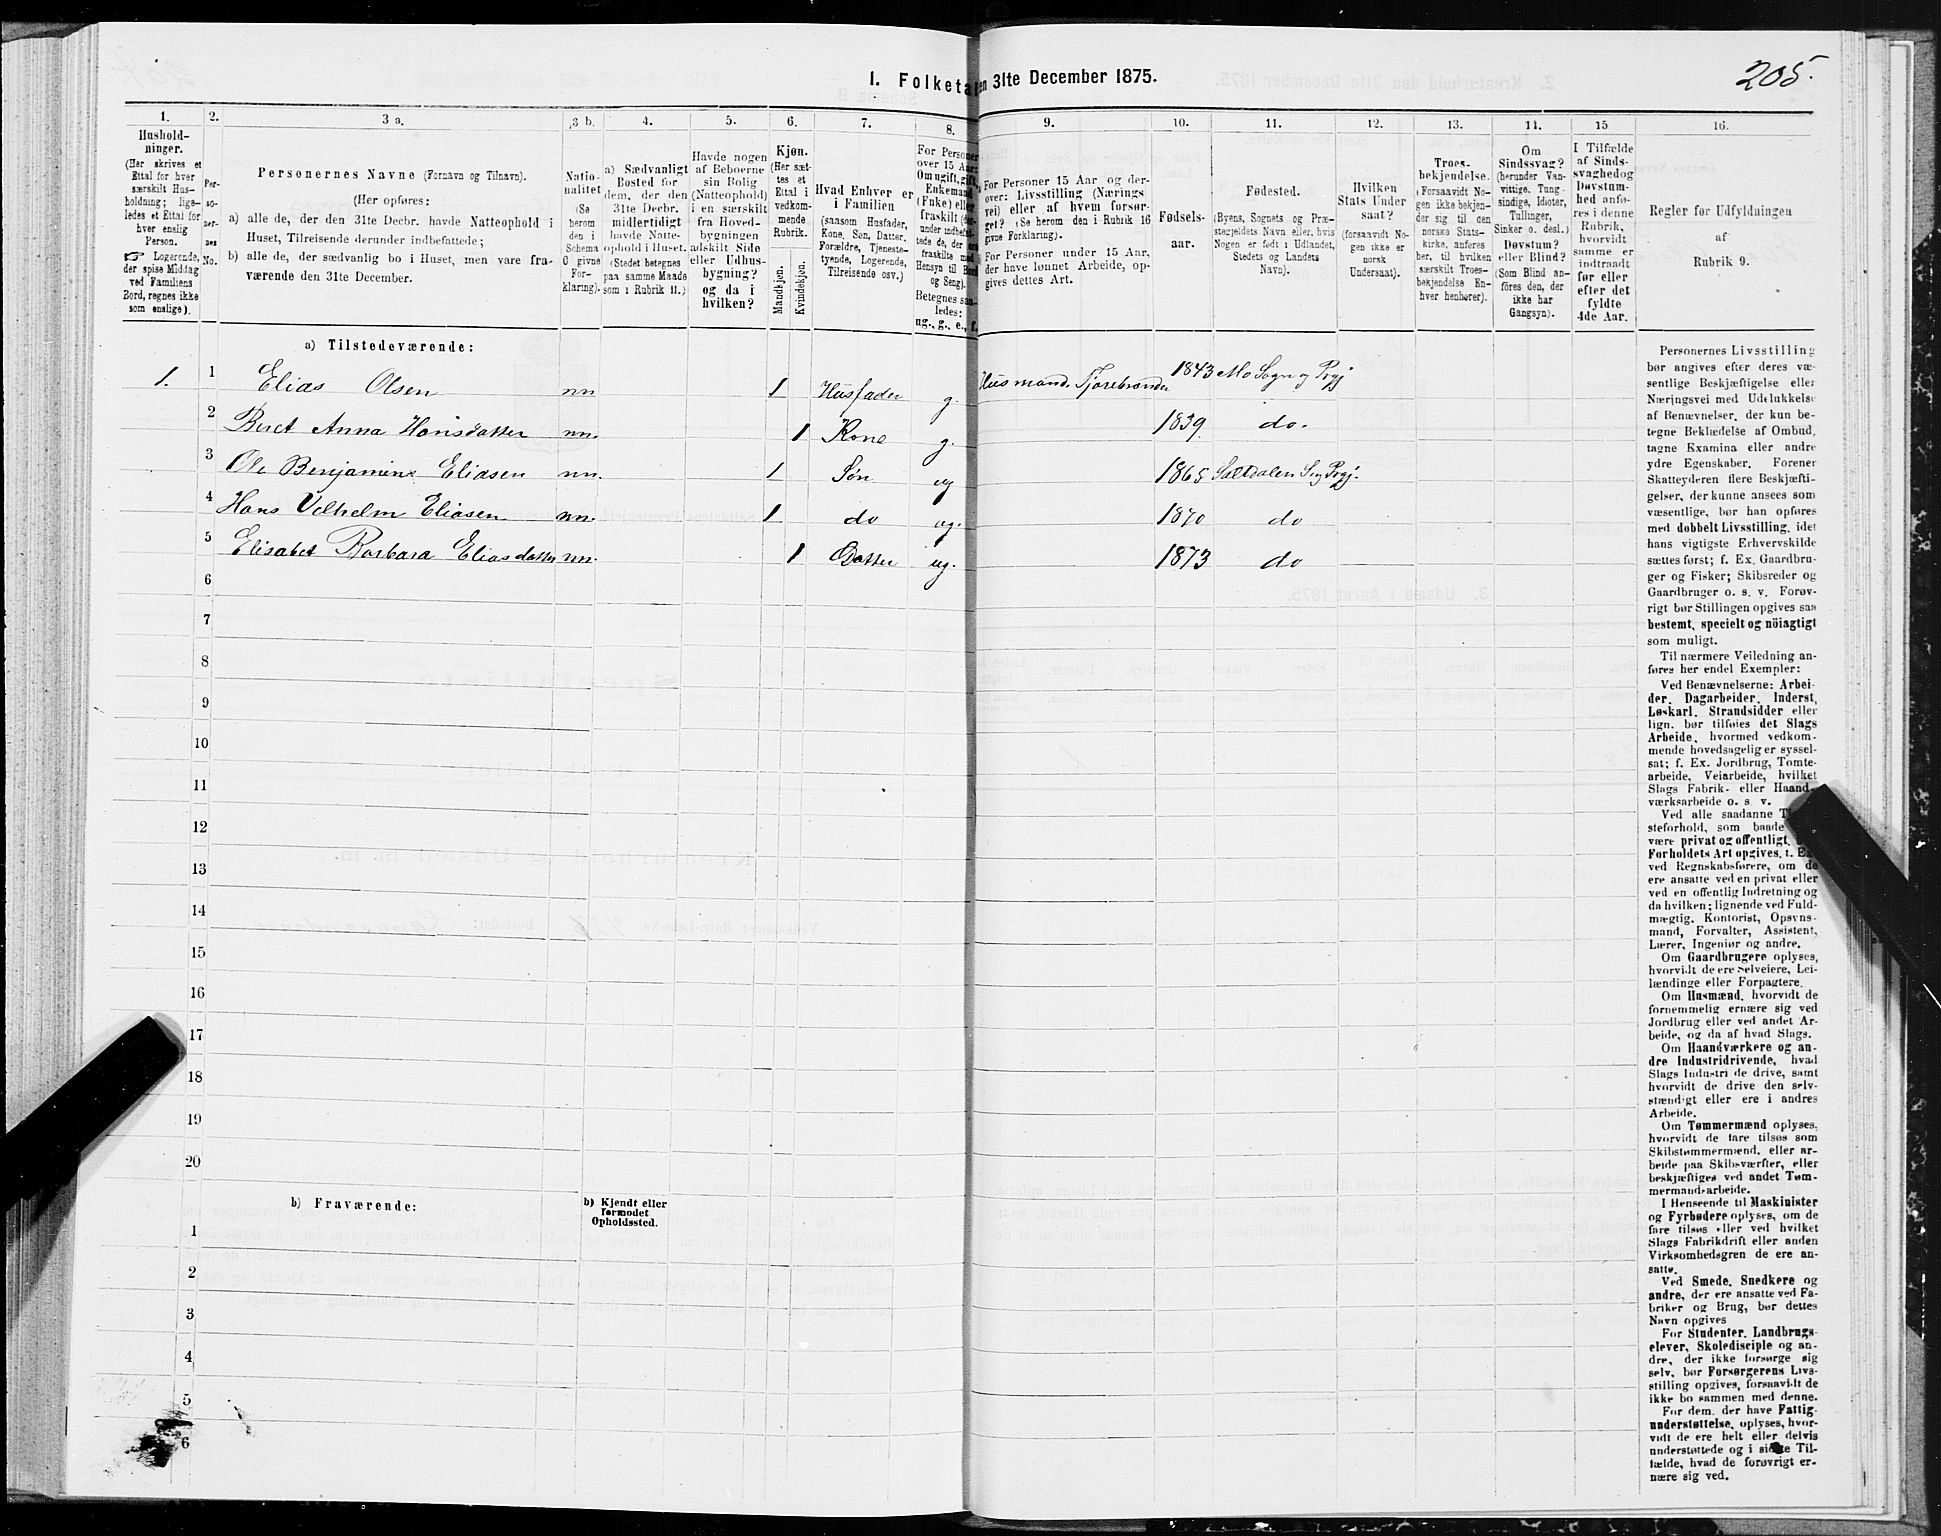 205.
I. Folketa en 31te December 1875.
1. 2. 3 a. 3 b. 4. 5. 6. 7. 8. 9. 10. 11. 12. 13. 14. 15 16.
Hushold-
ninger.
(Her skrives et
Ettal for hver
særskilt Hus-
holdning; lige-
ledes et Ettal for
hver enslig
Person.
☞ Logerende,
der spise Middag
ved Familiens
Bord, regnes ikke
som enslige).
Per-
so-
ner-
nes
No.
Personernes Navne (Fornavn og Tilnavn).
(Her opføres:
a) alle de, der den 31te Decbr. havde Natteophold i
Huset, Tilreisende derunder indbefattede;
b) alle de, der sædvanlig bo i Huset, men vare fra-
værende den 31te December.
Natio-
nalitet
(Se
herom
den i
Schema
O givne
For-
klaring).
a) Sædvanligt
Bosted for
dem, der den
31te Decbr.
midlertidigt
havde Natte-
ophold i Huset.
(Stedet betegnes
paa samme Maade
som i Rubrik 11.)
Havde nogen
af Beboerne
sin Bolig
(Natteophold)
i en særskilt
fra Hoved-
bygningen
adskilt Side
eller Udhus-
bygning?
og da i
hvilken?
Kjøn.
(Her sæt-
tes et
Ettal i
vedkom-
mende
Rubrik.
Mandkjøn.
Kvindekjøn.
Hvad Enhver er
i Familien
(saasom Husfader,
Kone, Søn, Datter,
Forældre, Tjeneste-
tyende, Logerende,
Tilreisende osv.)
For Personer
over 15 Aar:
Om ugift, gift,
Enkemand
(Enke) eller
fraskilt (der-
under indbefat-
tede de, der ere
fraskilte med
Hensyn til Bord
og Seng).
Betegnes saa-
ledes:
ug., g., e., f.
For Personer 15 Aar og der-
over: Livsstilling (Nærings-
vei) eller af hvem forsør-
get? (Se herom den i Rubrik 16
givne Forklaring).
For Personer under 15 Aar,
der have lønnet Arbeide, op-
gives dettes Art.
Fødsels-
aar.
Fødested.
(Byens, Sognets og Præ-
stegjeldets Navn eller, hvis
Nogen er født i Udlandet,
Stedets og Landets
Navn).
Hvilken
Stats Under
saat?
(forsaavidt No-
gen ikke er
norsk
Undersaat).
Troes-
bekjendelse.
(Forsaavidt No-
gen ikke bekjen-
der sig til den
norske Stats-
kirke, anføres
her, til hvilken
særskilt Troes-
bekjendelse En-
hver henhører).
Om
Sindssvag?
(herunder Van-
vittige, Tung-
sindige, Idioter,
Tullinger,
Sinker o. desl.)
Døvstum?
eller Blind?
(Som Blind an-
føres den, der
ikke har
Gangsyn).
I Tilfælde
af Sinds-
svaghed og
Døvstum-
hed anfø-
res i denne
Rubrik,
hvorvidt
samme er
indtraadt
før eller
efter det
fyldte
4de Aar.
Regler for Udfyldningen
af
Rubrik 9.
a) Tilstedeværende:
1. 1 Elias Olsen nn 1 Husfader g. Husmand. Tjærebrænder 1843 Mo Sogn og Prgj
2 Beret Anna Hansdatter nn. 1 Kone g. 1839. do.
3 Ole Benjamin Eliasen nn. 1 Søn ug 1865 Saltdalen S og Prgj.
4 Hans Vilhelm Eliasen nn. 1 do ug. 1870 do
5 Elisabet Barbara Eliasdatter nn. 1 Datter ug. 1873 do
6
7
8
9
10
11
12
13
14
15
16
17
18
19
20
b) Fraværende:
b) Kjendt eller
formodet
Opholdssted.
1
2
3
4
5
6
Personernes Livsstilling
bør angives efter deres væ-
sentlige Beskjæftigelse eller
Næringsvei med Udelukkelse
af Benævnelser, der kun be-
tegne Beklædelse af Ombud,
tagne Examina eller andre
ydre Egenskaber. Forener
Skatteyderen flere Beskjæfti-
gelser, der kunne ansees som
væsentlige, bør han opføres
med dobbelt Livsstilling, idet
hans vigtigste Erhvervskilde
sættes først; f. Ex. Gaardbru-
ger og Fisker; Skibsreder og
Gaardbruger o. s. v. Forøv-
rigt bør Stillingen opgives saa
bestemt, specielt og nöiagtigt
som muligt.
Til nærmere Veiledning an-
føres her endel Exempler:
Ved Benævnelserne: Arbei-
der, Dagarbeider, Inderst,
Løskarl, Strandsidder eller
lign. bør tilføies det Slags
Arbeide, hvormed vedkom-
mende hovedsagelig er syssel-
sat; f. Ex. Jordbrug, Tomte-
arbeide, Veiarbeide, hvilket
Slags Fabrik- eller Haand-
værksarbeide o. s. v.
Ved alle saadanne T
steforhold, som baade
være privat og offentligt,
Forholdets Art opgives, t. Ex
ved Regnskabsførere, om de
ere ansatte ved en privat eller
ved en offentlig Indretning og
da hvilken; lignende ved Fuld-
mægtig, Kontorist, Opsyns-
mand, Forvalter, Assistent,
Lærer, Ingeniør og andre.
Om Gaardbrugere oplyses,
hvorvidt de ere Selveiere, Lei-
lændinge eller Forpagtere.
Om Husmænd, hvorvidt de
fornemmelig ernære sig ved
Jordbrug eller ved andet Ar-
beide, og da af hvad Slags.
Om Haandværkere og an-
dre Industridrivende, hvad
Slags Industri de drive, samt
hvorvidt de drive den selv-
stændigt eller ere i andres
Arbeide.
Om Tømmermænd oplyses,
hvorvidt de fare tilsøs som
Skibstømmermænd, eller ar-
beide paa Skibsværfter, eller
beskjæftiges ved andet Tøm-
mermandsarbeide.
I Henseende til Maskinister
og Fyrbødere oplyses, om de
fare tilsøs eller ved hvilket
Slags Fabrikdrift eller anden
Virksomhedsgren de ere an-
satte.
Ved Smede, Snedkere og
andre, der ere ansatte ved Fa-
briker og Brug, bør dettes
Navn opgives
For Studenter, Landbrugs-
elever, Skoledisciple og an-
dre, der ikke forsørge sig
selv, bør Forsørgerens Livs-
stilling opgives, forsaavidt de
ikke bo sammen med denne.
For dem, der have Fattig-
understøttelse, oplyses, hvor-
vidt de ere helt eller delvis
understøttede og i sidste Til-
fælde, hvad de forøvrigt er-
nære sig ved.